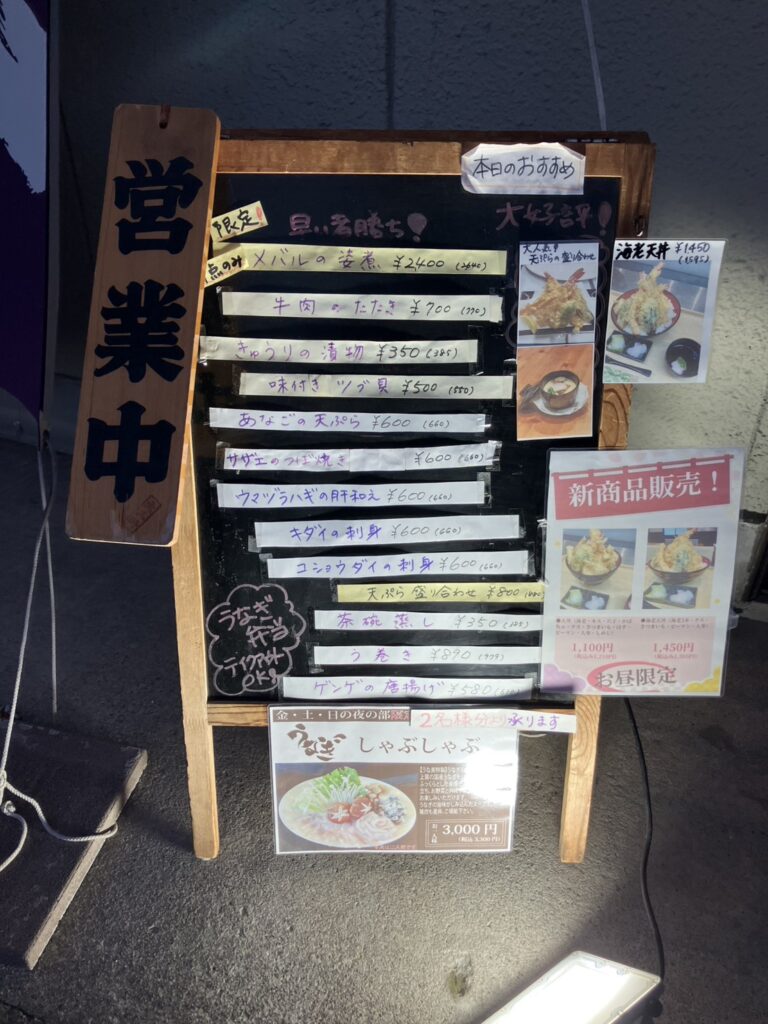 営業中
本日のおすすめ
限定!
早い者勝ち!
大好評!
点のみ
メバルの姿煮 ¥2400 (2640)
牛肉のたたき ¥700 (770)
きゅうりの漬物 ¥350 (385)
味付きツブ貝 ¥500 (550)
あなごの天ぷら ¥600 (660)
サザエのつぼ焼き ¥600 (660)
ウマヅラハギの肝和え ¥600 (660)
キダイの刺身 ¥600 (660)
コショウダイの刺身 ¥600 (660)
天ぷら盛り合わせ ¥800
茶碗蒸し ¥350
う巻き ¥890 (979)
ゲンゲの唐揚げ ¥580
うなぎ
弁当
テイクアウト
OK!
大人気中
天ぷらの盛り合わせ
海老天丼 ¥1,450
(1595)
新商品販売!
1,100円
1,450円
お昼限定
金・土・日の夜の部限定
2名様分より承ります
うなぎ しゃぶしゃぶ
お一人様
3,000円
(税込3,300円)